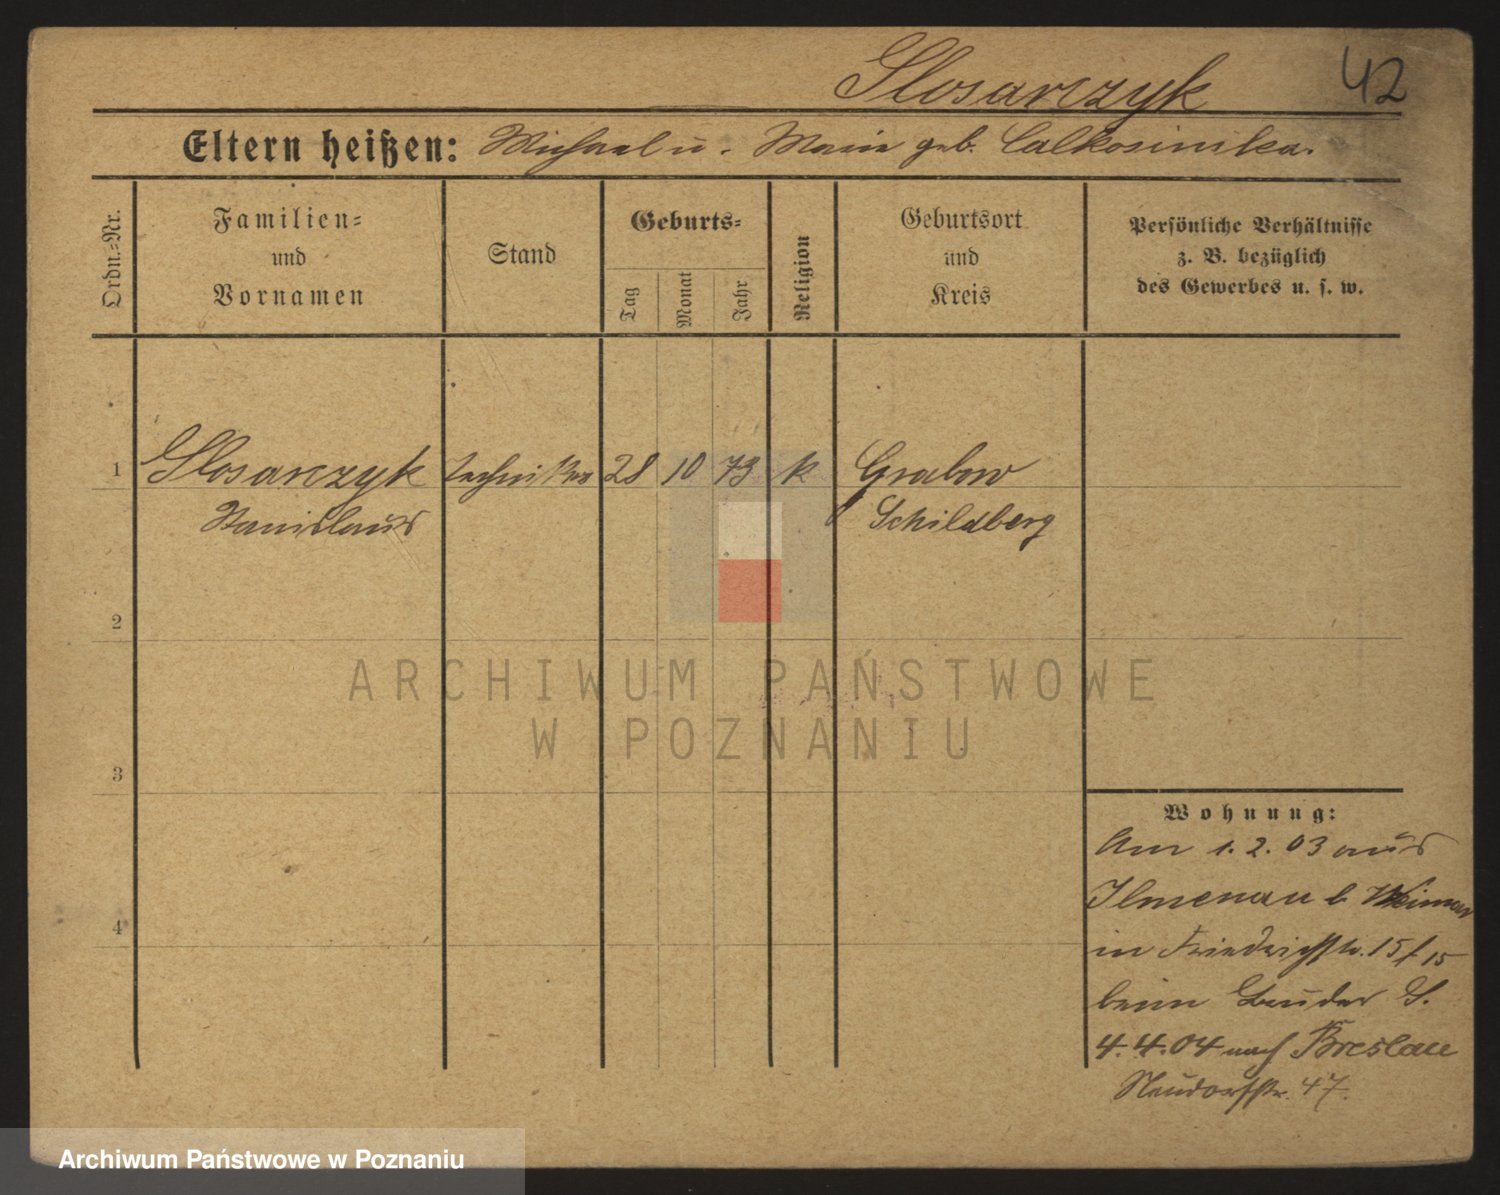 Slosarczyk
42
Eltern heißen: Michael u. Marie geb. Calkosinska.
Ordn.-Nr.
Familien-
und
Vornamen
Stand
Geburts-
Tag
Monat
Jahr
Religion
Geburtsort
und
Kreis
Persönliche Verhältnisse
z. B. bezüglich
des Gewerbes u. s. w.
1 Slosarczyk Techniker 28 10 73 k Grabow
Stanislaus Schildberg
2
3
4
ARCHIWUM PAŃSTWOWE
W POZNANIU
Wohnung:
Am 1. 2. 03 aus
Ilmenau b Weimar
in Friedrichstr. 15/15
beim Bruder S.
4.4.04 nach Breslau
Neudorfstr. 47.
Archiwum Państwowe w Poznaniu